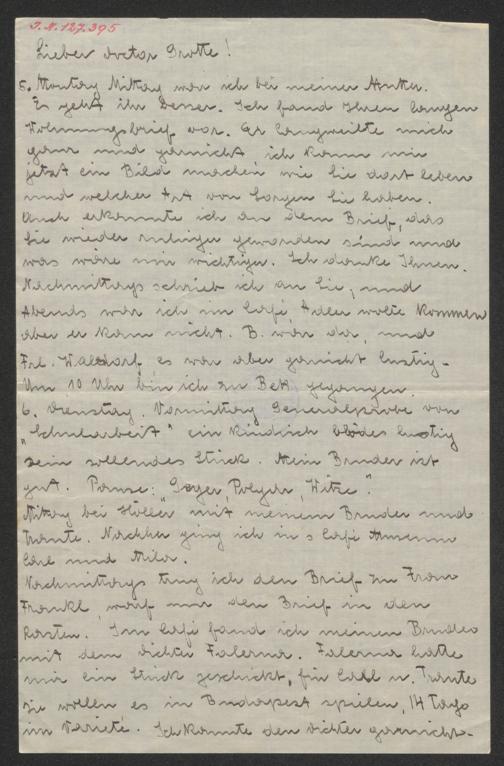 J.N. 127.395
Lieber Doctor Grotte!
5. Montag Mittag war ich bei meiner Mutter.
Es geht ihr besser. Ich fand Ihren langen
Wohnungsbrief vor. Er langweilte mich
ganz und garnicht, ich kann mir
jetzt ein Bild machen wie Sie dort leben
und welcher Art von Sorgen Sie haben.
Auch erkannte ich an dem Brief, das
Sie wieder ruhiger geworden sind und
was wäre mir wichtiger. Ich danke Ihnen.
Nachmittags schrieb ich an Sie, und
Abends war ich im Café, Adler wollte kommen
aber er kam nicht. B. war da, und
Frl. Walldorf, es war aber garnicht lustig.
Um 10 Uhr bin ich zu Bett gegangen.
6. Dienstag. Vormittag Generalprobe von
"Schularbeit" ein kindisch blödes lustig
sein sollendes Stück. Mein Bruder ist
gut. Pause: "Sager, Polgar, Witze".
Mittag bei Höller mit meinem Bruder und
Trante. Nachher ging ich in's Café Museum
Carl und Mila.
Nachmittags trug ich den Brief zu Frau
Frankl, warf nur den Brief in den
Kasten. Im Café fand ich meinen Bruder
mit dem Dichter Falerma. Falerma hatte
mir ein Stück geschickt, für Carl u. Trante
sie wollen es in Budapest spielen, 14 Tage
im Varieté. Ich kannte den Dichter garnicht.